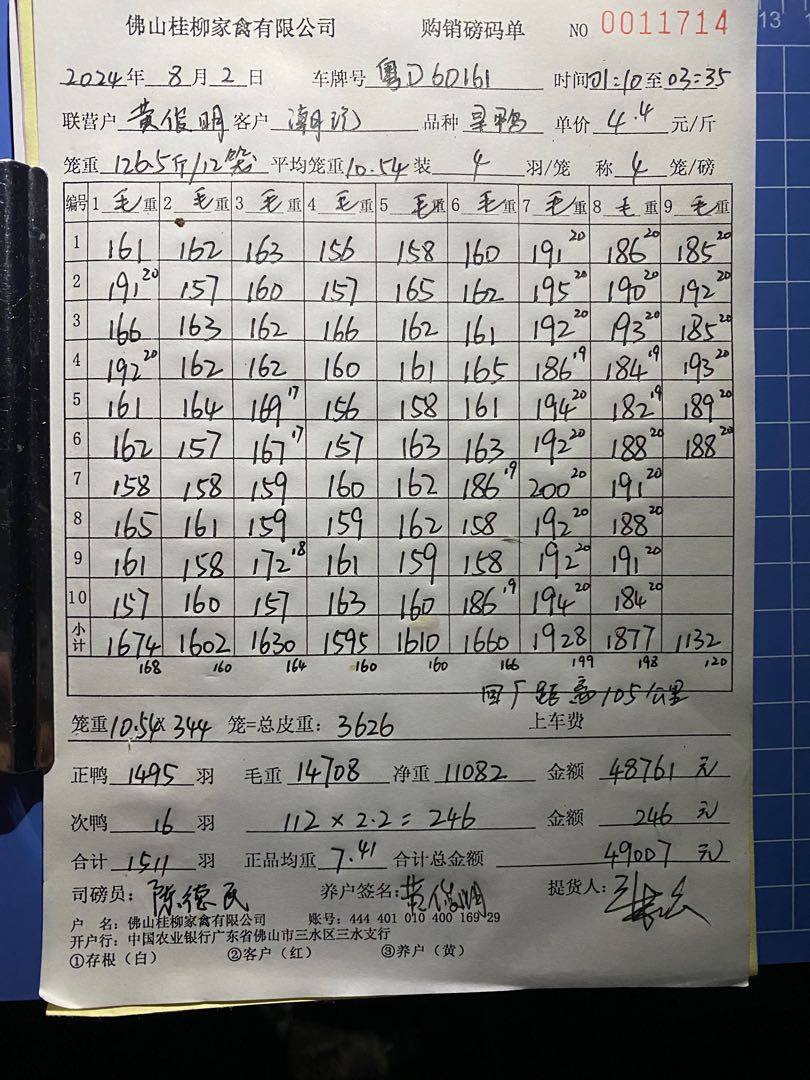 佛山桂柳家禽有限公司 购销磅码单 NO 0011714
2024年 8月2日 车牌号 粤D60161 时间01:10至03:35
联营户 黄俊明 客户 品种 单价 4.4 元/斤
笼重 126.5斤/12笼 平均笼重10.54 装 4 羽/笼 称 4 笼/磅
编号 1 毛重 2 毛重 3 毛重 4 毛重 5 毛重 6 毛重 7 毛重 8 毛重 9 毛重
1 161 162 163 156 158 160 191 20 186 20 185 20
2 191 20 157 160 157 165 162 195 20 190 20 192 20
3 166 163 162 166 162 161 192 20 193 20 185 20
4 192 20 162 162 160 161 165 186 19 184 19 193 20
5 161 164 169 17 156 158 161 194 20 182 19 189 20
6 162 157 167 17 157 163 163 192 20 188 20 188 20
7 158 158 159 160 162 186 19 200 20 191 20
8 165 161 159 159 162 158 192 20 188 20
9 161 158 172 18 161 159 158 192 20 191 20
10 157 160 157 163 160 186 19 194 20 184 20
小计 1674 1602 1630 1595 1610 1660 1928 1877 1132
168 160 164 160 160 166 199 198 120
回厂距离105公里
笼重10.54× 344 笼=总皮重: 3626 上车费
正鸭 1495 羽 毛重 14708 净重 11082 金额 48761 元
次鸭 16 羽 112 × 2.2 = 246 金额 246 元
合计 1511 羽 正品均重 7.41 合计总金额 49007 元
司磅员: 陈德民 养户签名: 黄俊明 提货人:
户 名: 佛山桂柳家禽有限公司 账号: 444 401 010 400 169 29
开户行: 中国农业银行广东省佛山市三水区三水支行
①存根（白） ②客户（红） ③养户（黄）
13